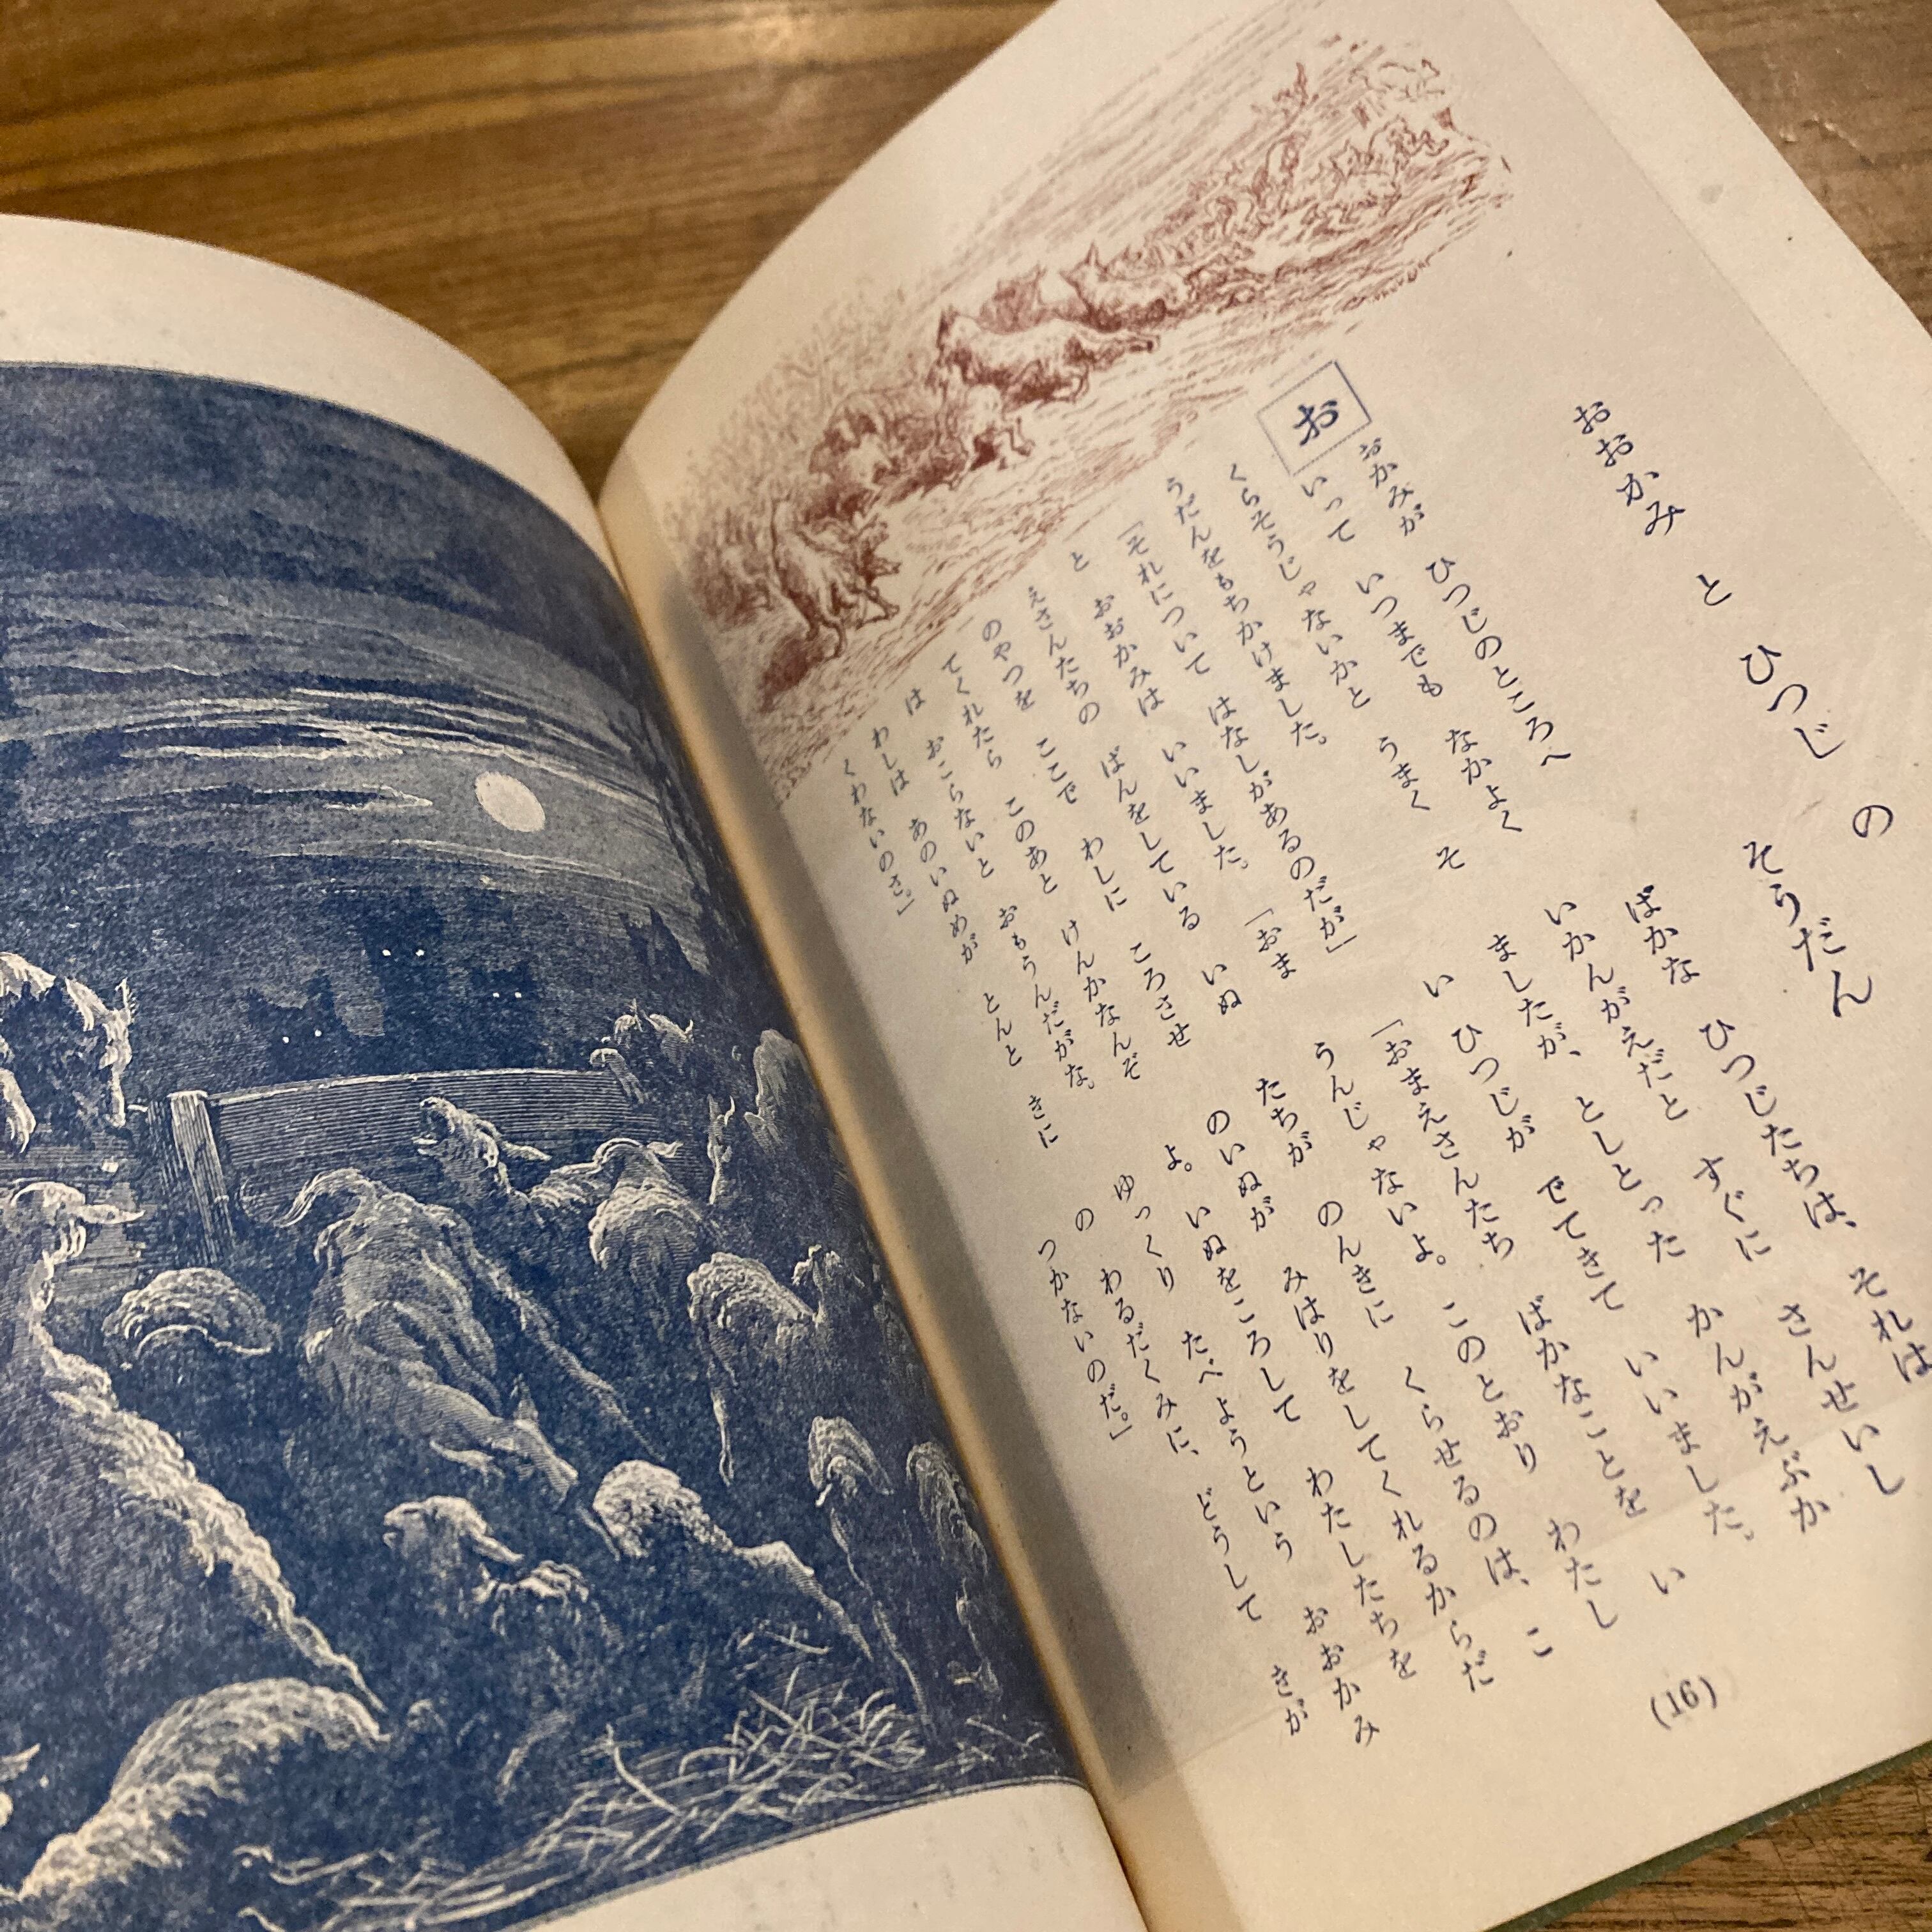 おおかみ と ひつじ の
そうだん
お
おかみが ひつじのところへ
いって いつまでも なかよく
くらそうじゃないかと うまく そ
うだんをもちかけました。
「それについて はなしがあるのだが」
と おおかみは いいました。「おま
えさんたちの ばんをしている いぬ
のやつを ここで わしに ころさせ
てくれたら このあと けんかなんぞ
は おこらないと おもうんだがな。
わしは あのいぬめが とんと きに
くわないのさ。」
ばかな ひつじたちは、それは
いかんがえだと すぐに さんせいし
ましたが、としとった かんがえぶか
い ひつじが でてきて いいました。
「おまえさんたち ばかなことを い
うんじゃないよ。このとおり わたし
たちが のんきに くらせるのは、こ
のいぬが みはりをしてくれるからだ
よ。いぬをころして わたしたちを
ゆっくり たべようという おおかみ
の わるだくみに、どうして きが
つかないのだ。」
(16)